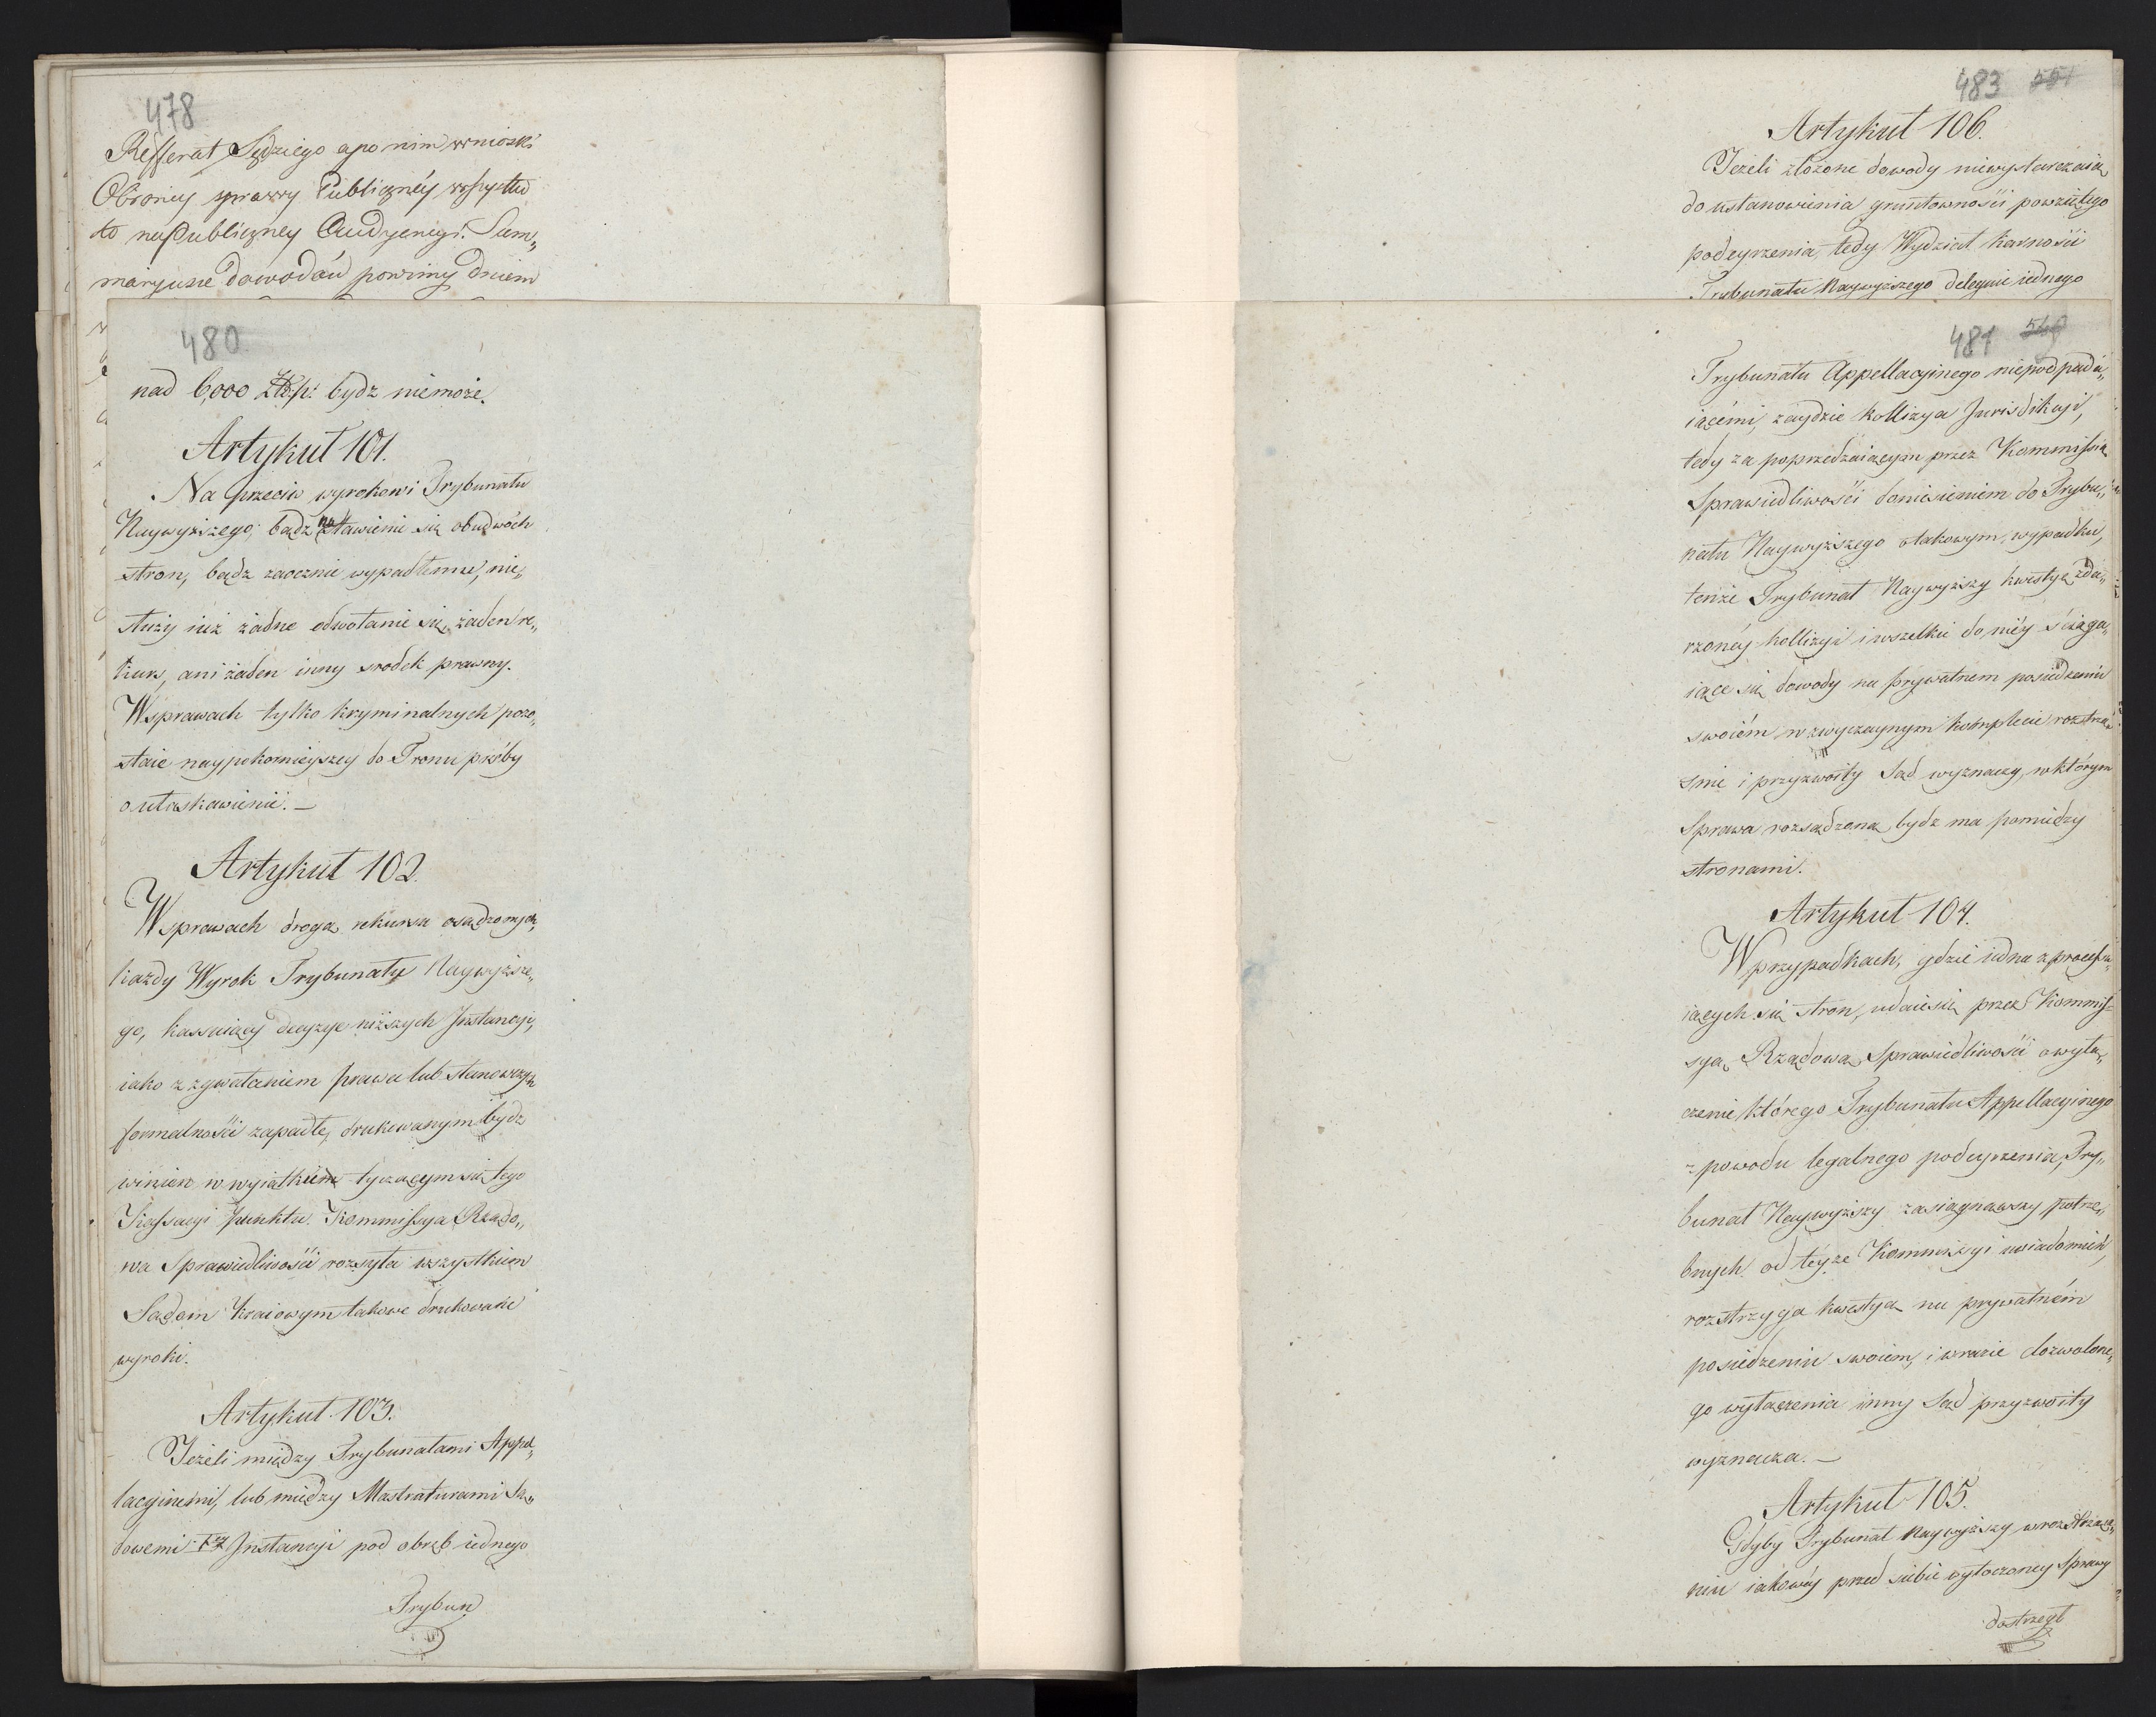 478
Refferat Sędziego a po nim wnioski
Obrońcy sprawy Publicznéy wszystko
to na Publiczney Audyencyi. Sum„
maryusze dowodów powinny dniem
480
nad 6,000 Złt.p: bydz niemoże.
Artykuł 101.
Na przeciw wyrokowi Trybunału
Naywyższego, bądz na stawienie się obudwóch
stron, bądz zaocznie wypadłemu, nie„
służy iuż żadne odwołanie się, żaden re„
kurs, ani żaden inny srodek prawny.
W sprawach tylko kryminalnych pozo„
staie naypokornieyszey do Tronu prośby
o ułaskawienie. —
Artykuł 102.
W sprawach drogą rekursu osądzonych,
każdy Wyrok Trybunału Naywyższe„
go, kassuiący decyzye niższych Instancyi,
iako z zgwałceniem prawa lub stanowczych
formalności zapadłe, drukowanym bydz
winien w wyiątku tyczącym się tego
Kassacyi punktu. Kommissya Rządo„
wa Sprawiedliwości rozsyła wszystkim
Sądom Kraiowym takowe drukowane
wyroki.
Artykuł 103.
Jeżeli między Trybunałami Appel„
lacyinemi, lub między Mastraturami Są„
dowemi Iéy Instancyi pod obręb iednego
Trybun
483 551
Artykuł 106.
Jeżeli złożone dowody niewystarczaią
do ustanowienia gruntowności powziętego
podeyrzenia, tedy Wydział karności
Trybunału Naywyższego deleguie iednego
481 549
Trybunału Appellacyinego niepodpada„
iącemi, zaydzie kollizya Jurisdikcyi,
tedy za poprzedzaiącym przez Kommissią
Sprawiedliwości doniesieniem do Trybu„
nału Naywyższego o takowym wypadku,
tenże Trybunał Naywyższy kwestyą zda„
rzonéy kollizyi i wszelkie do niéy ściąga„
iące się dowody na prywatnem posiedzeniu
swoiém w zwyczaynym komplecie roztrzą„
śnie i przyzwoity Sąd wyznaczy, w którym
Sprawa rozsądzoną bydz ma pomiędzy
stronami.
Artykuł 104.
W przypadkach, gdzie iedna z processu„
iących się stron, udaie się przez Kommis„
syą Rządową Sprawiedliwości o wyłą„
czenie którego Trybunału Appellacyinego
z powodu legalnego podeyrzenia, Try„
bunał Naywyższy zasiągnąwszy potrze„
bnych od téyże Kommissyi uwiadomień,
rozstrzyga kwestyą na prywatném
posiedzeniu swoiem, i w razie dozwolone„
go wyłączenia inny Sąd przyzwoity
wyznacza. —
Artykuł 105.
Gdyby Trybunał Naywyższy w roztrząsa„
niu iakowéy przed siebie wytoczoney Sprawy
dostrzegł